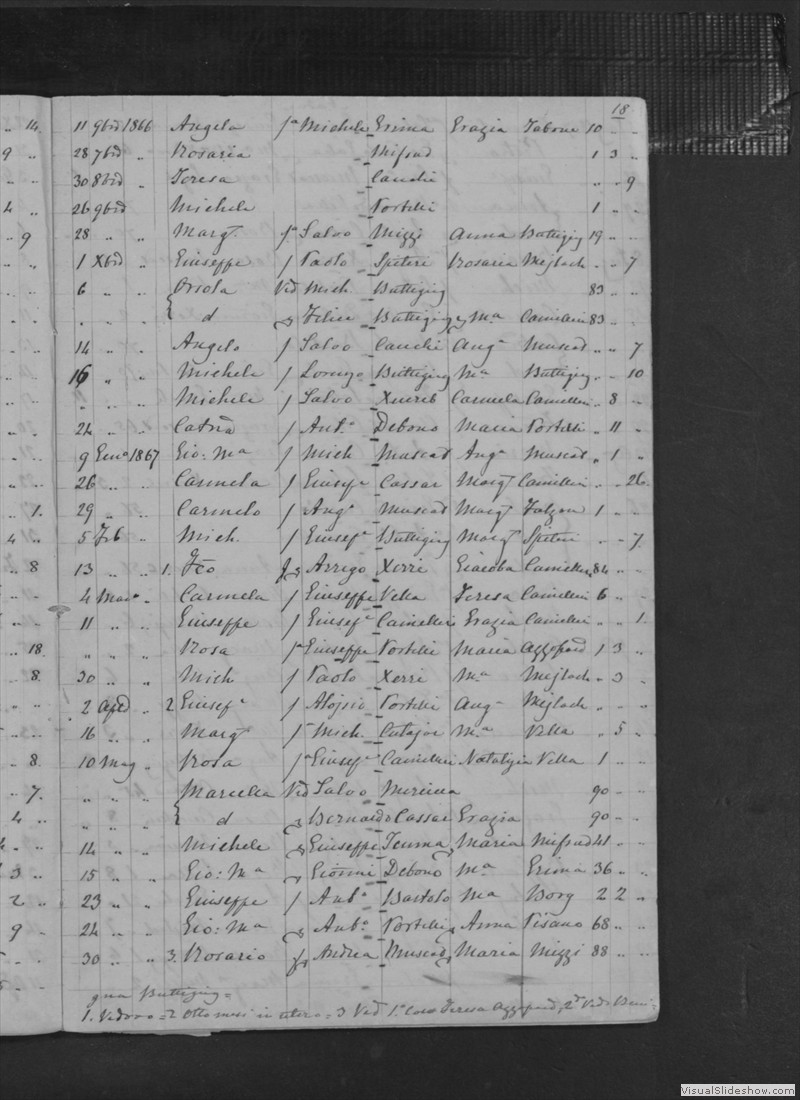 18
14 11 9brē 1866 Angela fa Michele Grima Grazia Tabone 10 " "
9 " 28 7brē " Rosaria Mifsud 1 3 "
" " 30 8brē " Teresa Cauchi " " 9
4 " 26 9brē Michele Portelli 1 "
" 9 28 " " Margta fa Salvo Mizzi Anna Buttigieg 19 " "
" " 1 Xbrē " Giuseppe f Paolo Spiteri Rosaria Mejlach " " 7
" " 6 " " Orsola Ved Mich. Buttigieg 83 " "
" " " d q Felice Buttigieg q Ma Camilleri 83 " "
" " 14 " " Angelo f Salvo Cauchi Anga Muscat " " 7
" " 16 " " Michele f Lorenzo Buttigieg Ma Buttigieg " " 10
" " " " Michele f Salvo Xuereb Carmela Camilleri " 8 "
" " 24 " " Catna f Anto Debono Maria Portelli " 11 "
" " 9 Geno 1867 Gio: Ma f Mich Muscat Anga Muscat " 1 "
" " 26 " " Carmela f Giusepe Cassar Margta Camilleri " " 26
" 1. 29 " " Carmelo f Ango Muscat Margta Falzon 1 " "
4 " 5 Feb " Mich. f Giusepe Buttigieg Margta Spiteri " " 7
" 8 13 " " 1. Fco f q Arrigo Xerri Giacoba Camilleri 84 " "
" " 4 Marzo " Carmela f Giuseppe Vella Teresa Camilleri 6 " "
" " 11 " " Giuseppe f Giusepe Camilleri Grazia Camilleri " " 1
" 18. " " " Rosa fa Giuseppe Portelli Maria Azzopard 1 3 "
" 8. 30 " " Mich f Paolo Xerri Ma Mejlach " 3 "
" " 2 Aple " 2 Giusepe f Alojsio Portelli Anga Mejlach " " "
" " 16 " " Margta f Mich. Cutajar Ma Vella " 5 "
" 8. 10 Mag " Rosa fa Giusepe Camilleri Natalizia Vella 1 " "
" 7. " " " Marcella Ved Salvo 90 " "
4 " " " " d q Bernardo Cassar Grazia 90 " "
" " 14 " " Michele q Giuseppe Teuma q Maria Mifsud 41 " "
3 " 15 " " Gio: Ma q Gionni Debono Ma Grima 36 " "
2 " 23 " " Giuseppe f Anto Bartolo Ma Borg 2 2 "
9 " 24 " " Gio: Ma q Anto Portelli q Anna Pisano 68 " "
" " 30 " " 3. Rosario f q Andrea Muscat q Maria Mizzi 88 " "
qua Buttigieg =
1. Vedovo = 2 Otto mesi in utero = 3 Ved 1o loco Teresa Azzopard, 2o Ved
VisualSlideshow.com